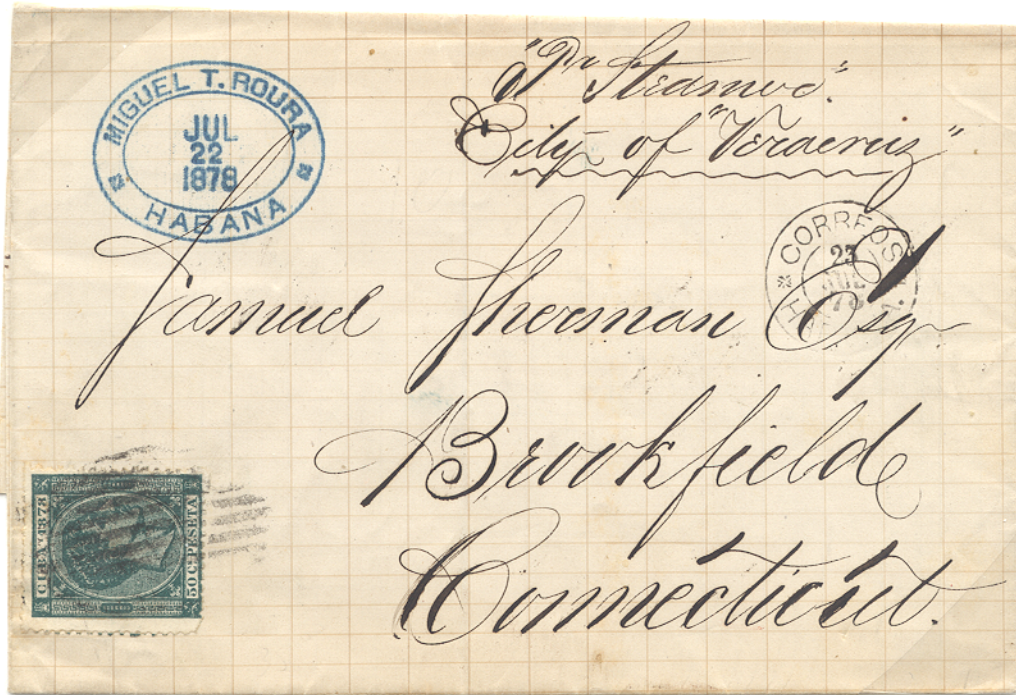 MIGUEL T. ROURA
JUL
22
1878
HABANA
"Pr Steamer"
City of "Veracruz"
CORREOS
23
JUL
78
Samuel Sherman Esqr
Brookfield
Connecticut.
CUBA 1878
50 C. PESETA